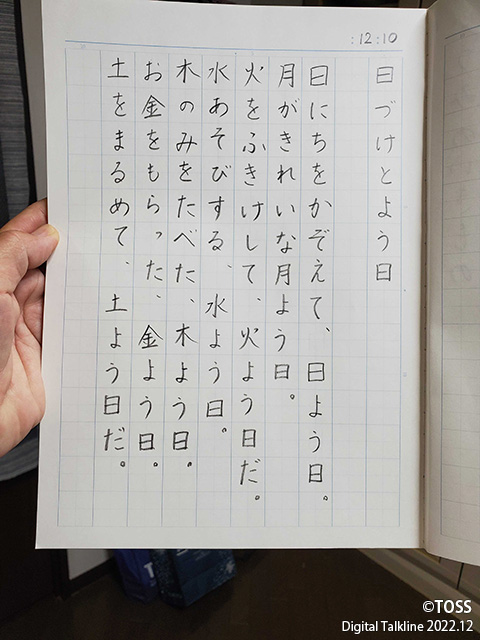 :12:10
日づけとよう日
日にちをかぞえて、日よう日。
月がきれいな月よう日。
火をふきけして、火よう日だ。
水あそびする、水よう日。
木のみをたべた、木よう日。
お金をもらった、金よう日。
土をまるめて、土よう日だ。
©TOSS
Digital Talkline 2022.12